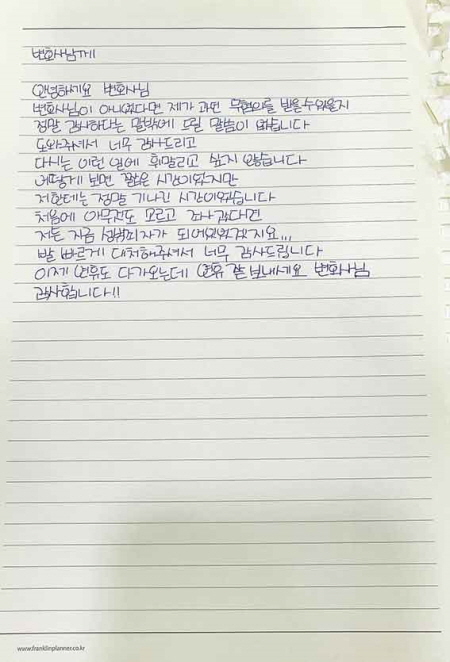 변호사님께
안녕하세요 변호사님
변호사님이 아니였다면 제가 과연 무혐의를 받을수있을지
정말 감사하다는 말밖에 드릴 말씀이 없습니다
도와주셔서 너무 감사드리고
다시는 이런 일에 휘말리고 싶지 않습니다
어떻게 보면 짧은 시간이였지만
저한테는 정말 기나긴 시간이였습니다
처음에 아무것도 모르고 조사 갔다면
저는 지금 성범죄자가 되어있었겠지요...
발 빠르게 대처해주셔서 너무 감사드립니다
이제 연휴도 다가오는데 연휴 잘 보내세요 변호사님
감사합니다!!
www.franklinplanner.co.kr